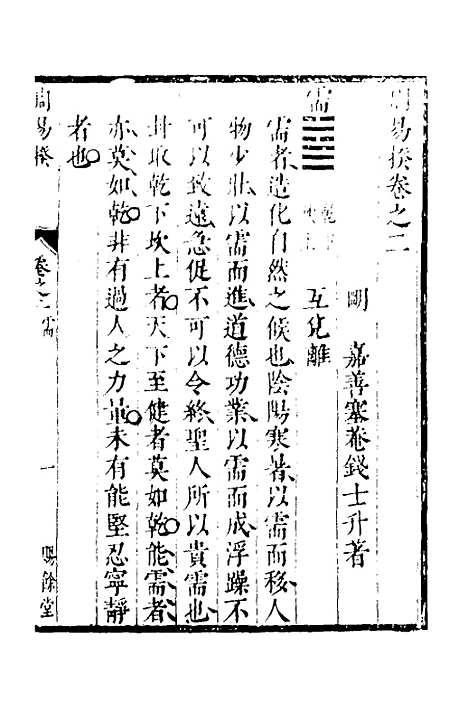 周易揆卷之二
明　嘉善塞菴錢士升著
需　乾下坎上　互兌離
需者造化自然之候也陰陽寒暑以需而移人
物少壯以需而進道德功業以需而成浮躁不
可以致遠急促不可以令終聖人所以貴需也
卦取乾下坎上者天下至健者莫如乾能需者
亦莫如乾非有過人之力量未有能堅忍寧靜
者也
周易揆　卷之二　需　一　賜餘堂